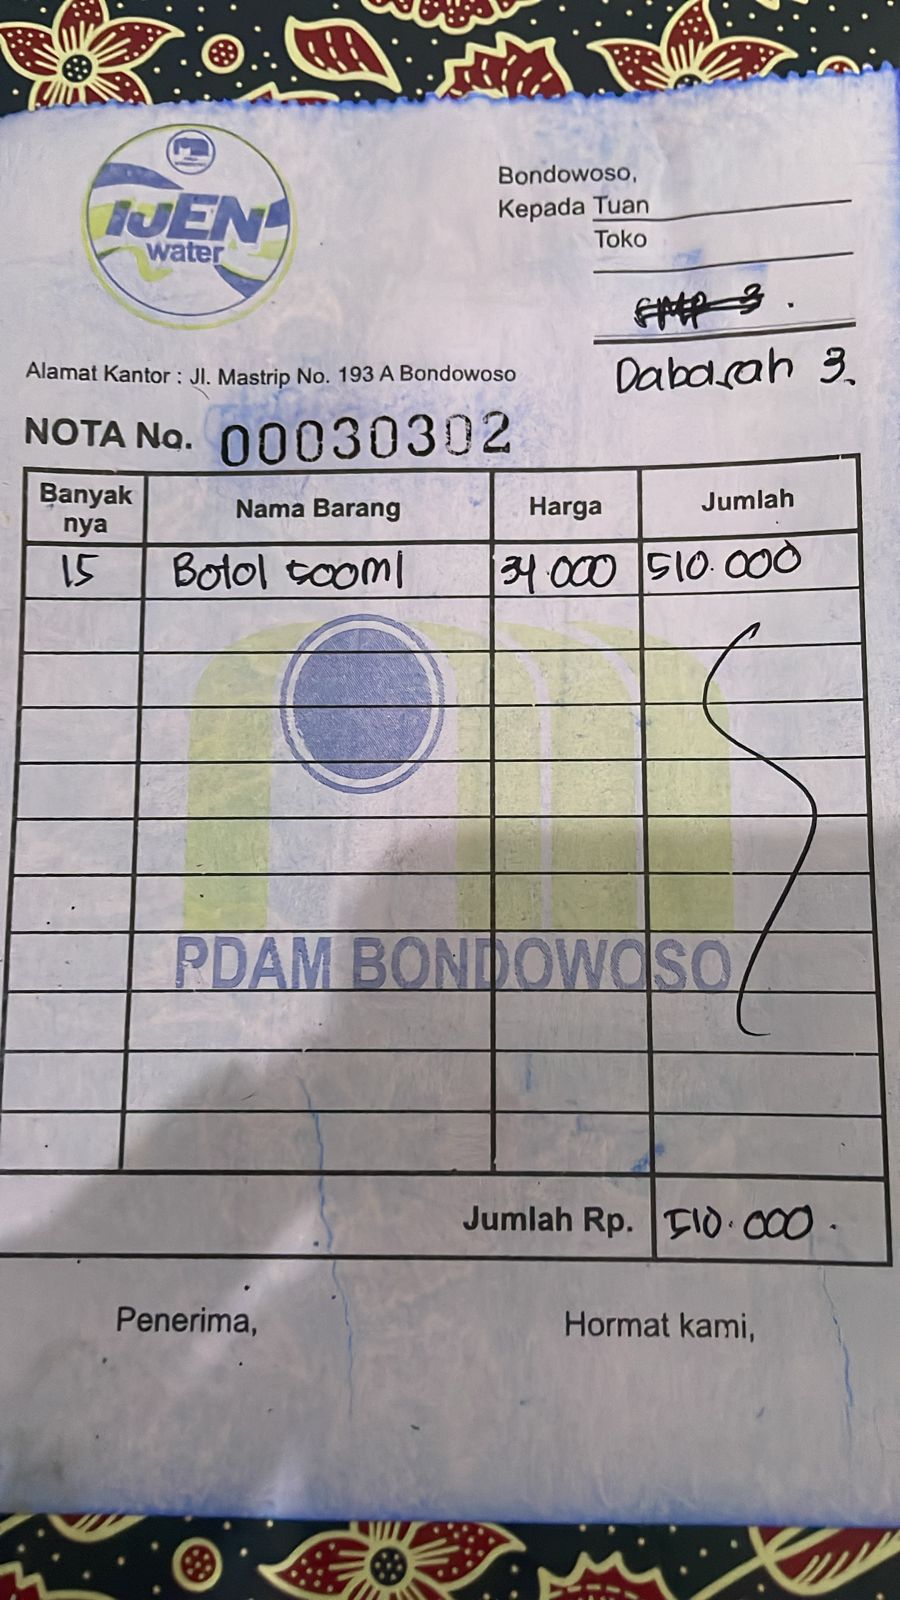 IJEN
water
Bondowoso,
Kepada Tuan
Toko
SMP 3.
Dabasah 3.
Alamat Kantor : Jl. Mastrip No. 193 A Bondowoso
NOTA No. 00030302
Banyak nya Nama Barang Harga Jumlah
15 Botol 500ml 34.000 510.000
PDAM BONDOWOSO
Jumlah Rp. 510.000.
Penerima, Hormat kami,